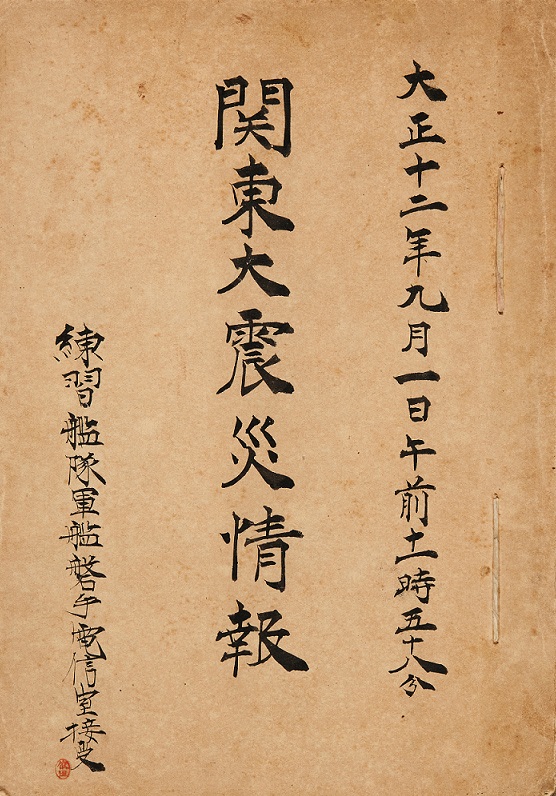 大正十二年九月一日午前十一時五十八分
関東大震災情報
練習艦隊軍艦磐手電信室接受